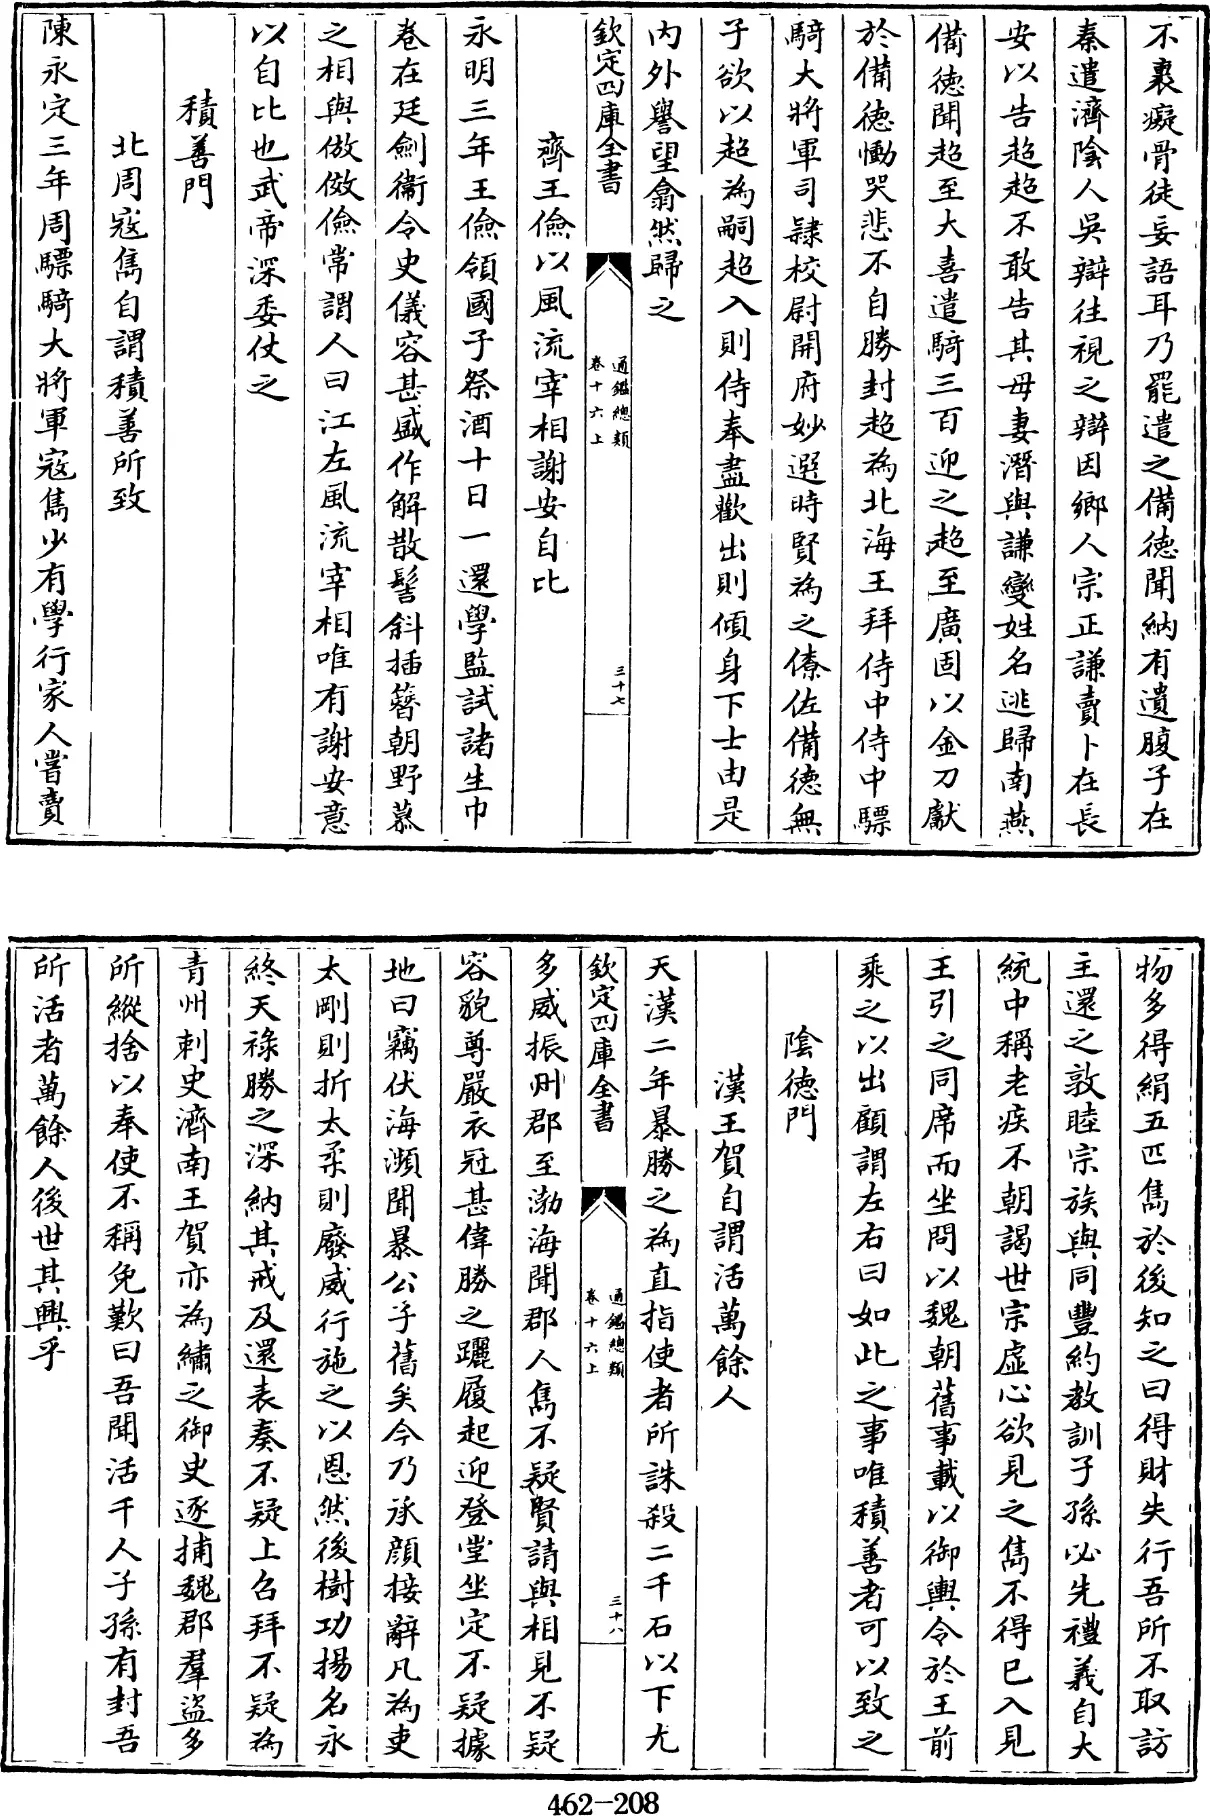 不裹癡骨徒妄語耳乃罷遣之備德聞納有遺腹子在
秦遣濟陰人吳辯往視之辯因鄉人宗正謙賣卜在長
安以告超超不敢告其母妻潛與謙變姓名逃歸南燕
備德聞超至大喜遣騎三百迎之超至廣固以金刀獻
於備德慟哭悲不自勝封超為北海王拜侍中侍中驃
騎大將軍司隸校尉開府妙選時賢為之僚佐備德無
子欲以超為嗣超入則侍奉盡歡出則傾身下士由是
内外譽望翕然歸之
欽定四庫全書
通鑑總類
卷十六上
三十七
齊王儉以風流宰相謝安自比
永明三年王儉領國子祭酒十日一還學監試諸生巾
卷在廷劍衞令史儀容甚盛作解散髻斜插簪朝野慕
之相與倣傚儉常謂人曰江左風流宰相唯有謝安意
以自比也武帝深委仗之
積善門
北周寇雋自謂積善所致
陳永定三年周驃騎大將軍寇雋少有學行家人嘗賣
物多得絹五匹雋於後知之曰得財失行吾所不取訪
主還之敦睦宗族與同豐約教訓子孫必先禮義自大
統中稱老疾不朝謁世宗虚心欲見之雋不得已入見
王引之同席而坐問以魏朝舊事載以御輿令於王前
乘之以出顧謂左右曰如此之事唯積善者可以致之
陰德門
漢王賀自謂活萬餘人
天漢二年暴勝之為直指使者所誅殺二千石以下尤
欽定四庫全書
通鑑總類
卷十六上
三十八
多威振州郡至渤海聞郡人雋不疑賢請與相見不疑
容貌尊嚴衣冠甚偉勝之躧履起迎登堂坐定不疑據
地曰竊伏海瀕聞暴公子舊矣今乃承顔接辭凡為吏
太剛則折太柔則廢威行施之以恩然後樹功揚名永
終天祿勝之深納其戒及還表奏不疑上召拜不疑為
青州刺史濟南王賀亦為繡之御史逐捕魏郡羣盜多
所縱捨以奉使不稱免歎曰吾聞活千人子孫有封吾
所活者萬餘人後世其興乎
462-208